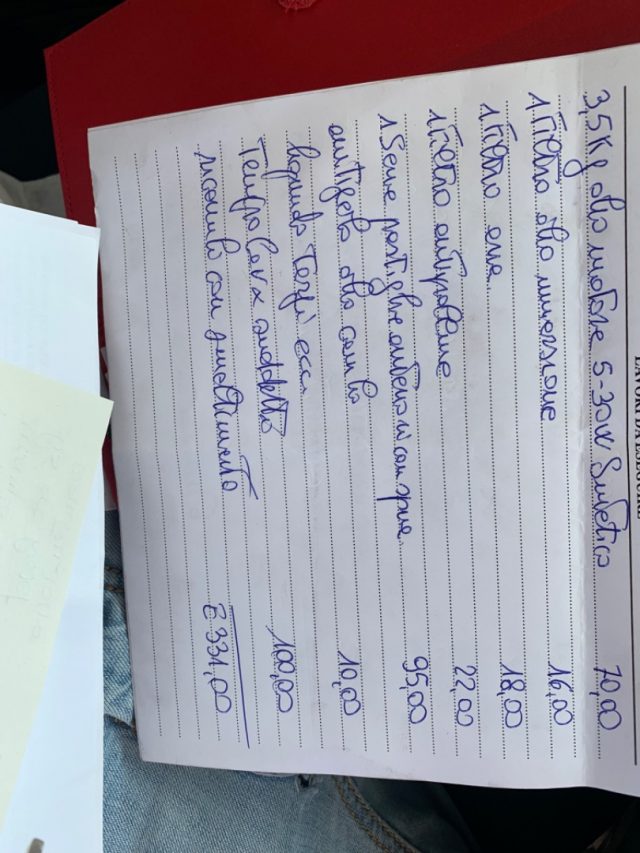 3,5Kg olio motore 5-30W Sintetico 70,00
1 Filtro olio immersione 16,00
1 Filtro aria 18,00
1 Filtro antipolline 22,00
1 Serie pastiglie anteriori con spie 95,00
antigelo olio cambio 10,00
liquido Tergi ecc.
Tempo lavoro suddetto 100,00
ricambi con smaltimento
€ 331,00